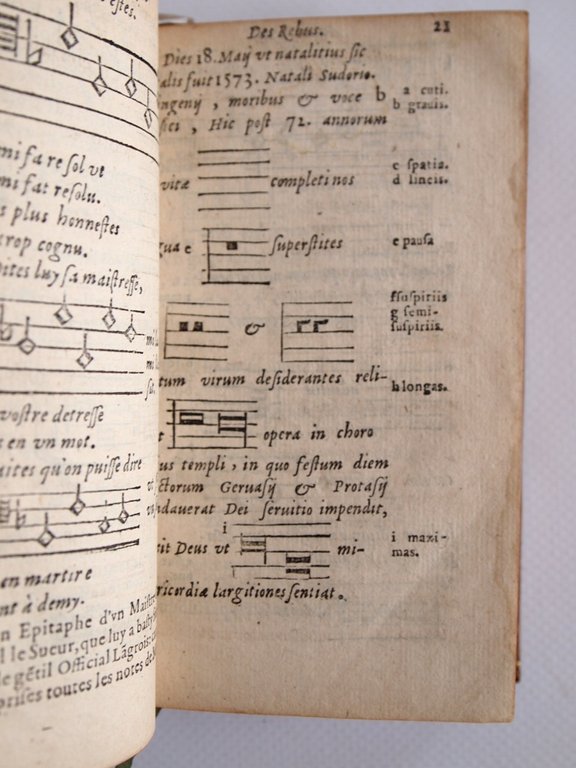 mi fa re sol vt
mi fat resolu.
s plus honnestes
trop cognu.
luy sa maistresse,
vostre detresse
s en vn mot.
aites qu'on puisse dire
an martire
nt à demy.
n Epitaphe d'vn
l le Sueur, que luy a
le gẽtil Official Lãgrois:
prises toutes les notes de
Des Rebus. 21
Dies 18. Maij vt natalitius sic
alis fuit 1573. Natali Sudorio.
ingenij, moribus & voce b
a cuti.
b grauis.
sici, Hic post 72. annorum
vitæ completi nos
c spatia.
d lineis.
gua e superstites
e pausa
&
f suspiriis
g semi-
suspiriis.
tum virum desiderantes reli-
h longas.
t opera in choro
us templi, in quo festum diem
ctorum Geruasij & Protasij
ndauerat Dei seruitio impendit,
i
tit Deus vt mi-
i maxi-
mas.
ricordiæ largitiones sentiat.